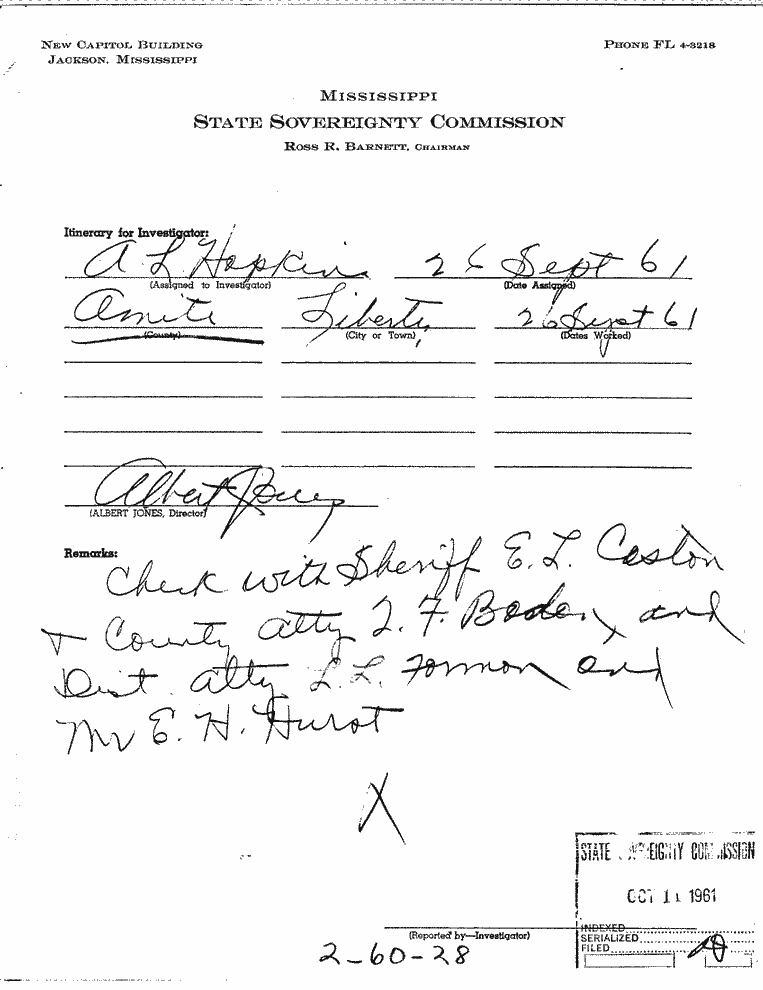 NEW CAPITOL BUILDING
JACKSON, MISSISSIPPI
PHONE FL 4-3218
MISSISSIPPI
STATE SOVEREIGNTY COMMISSION
ROSS R. BARNETT, CHAIRMAN
Itinerary for Investigator:
A L Hopkins 26 Sept 61
(Assigned to Investigator) (Date Assigned)
Amite Liberty, 26 Sept 61
(County) (City or Town) (Dates Worked)
Albert Jones
(ALBERT JONES, Director)
Remarks:
Check with Sheriff E. L. Caston
+ County atty J. F. Boden, and
Dist. atty L. L. Forman and
Mr E. H. Hurst
X
STATE SOVEREIGNTY COMMISSION
OCT 11 1961
INDEXED
SERIALIZED
FILED
(Reported by—Investigator)
2-60-28